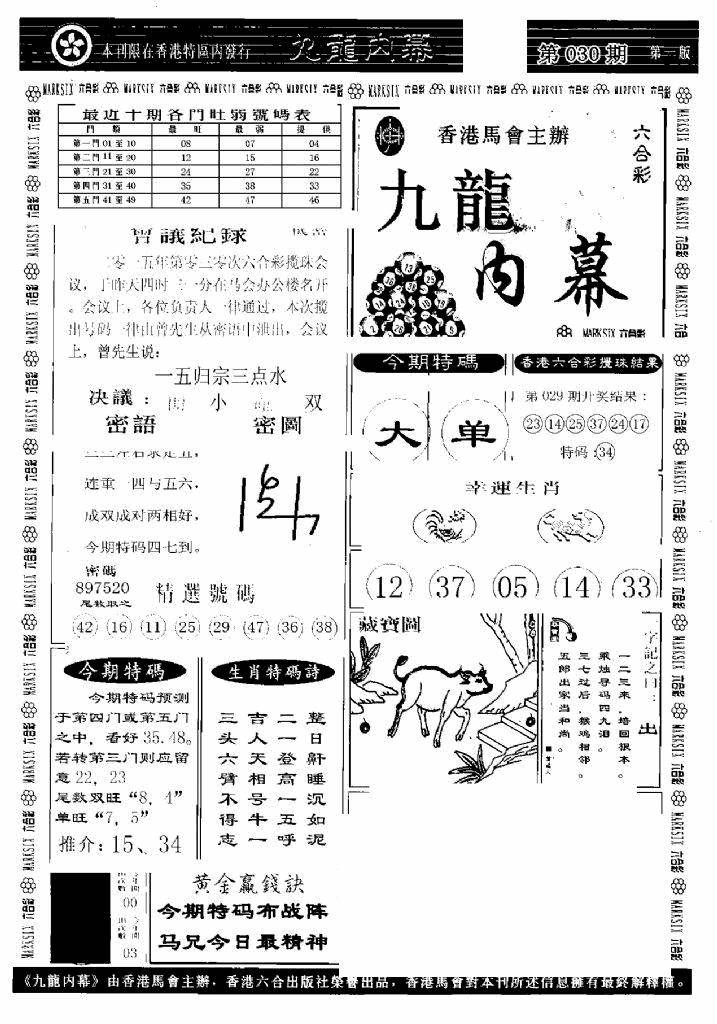 本刊限在香港特區内發行
九龍内幕
第 030 期
第一版
MARKSIX 六合彩
最近十期各門旺弱號碼表
門 類 最 旺 最 弱 提 供
第一門 01 至 10 08 07 04
第二門 11 至 20 12 15 16
第三門 21 至 30 24 27 22
第四門 31 至 40 35 38 33
第五門 41 至 49 42 47 46
香港馬會主辦
六合彩
九龍
内幕
MARKSIX 六合彩
會議紀錄
零一五年第零三零次六合彩攪珠会
议，于昨天四时 一分在马会办公楼名开
。会议上，各位负责人一律通过，本次攪
出号码一律由曾先生从密语中泄出，会议
上，曾先生说：
一五归宗三点水
决議： 小 双
密語 密圖
连重一四与五六，
成双成对两相好，
今期特码四七到。
密碼
897520
尾数取之
精選號碼
42 16 11 25 29 47 36 38
今期特碼
大 单
香港六合彩攪珠結果
第 029 期开奖结果：
23 14 25 37 24 17
特码：34
幸運生肖
12 37 05 14 33
藏寶圖
字記之曰：出
一二三来，培回根本。
乘烛寻码四九泪。
三七过后，猴鸡相邻。
五郎出家当和尚。
今期特碼
今期特码预测
于第四门或第五门
之中，看好 35.48。
若转第三门则应留
意 22，23
尾数双旺“8，4”
单旺“7，5”
推介：15、34
生肖特碼詩
三 吉 二 整
头 人 一 日
六 天 登 鼾
臂 相 高 睡
不 号 一 沉
得 牛 五 如
志 一 呼 泥
00
03
黄金贏錢訣
今期特码布战阵
马兄今日最精神
《九龍内幕》由香港馬會主辦，香港六合出版社榮譽出品，香港馬會對本刊所述信息擁有最終解釋權。